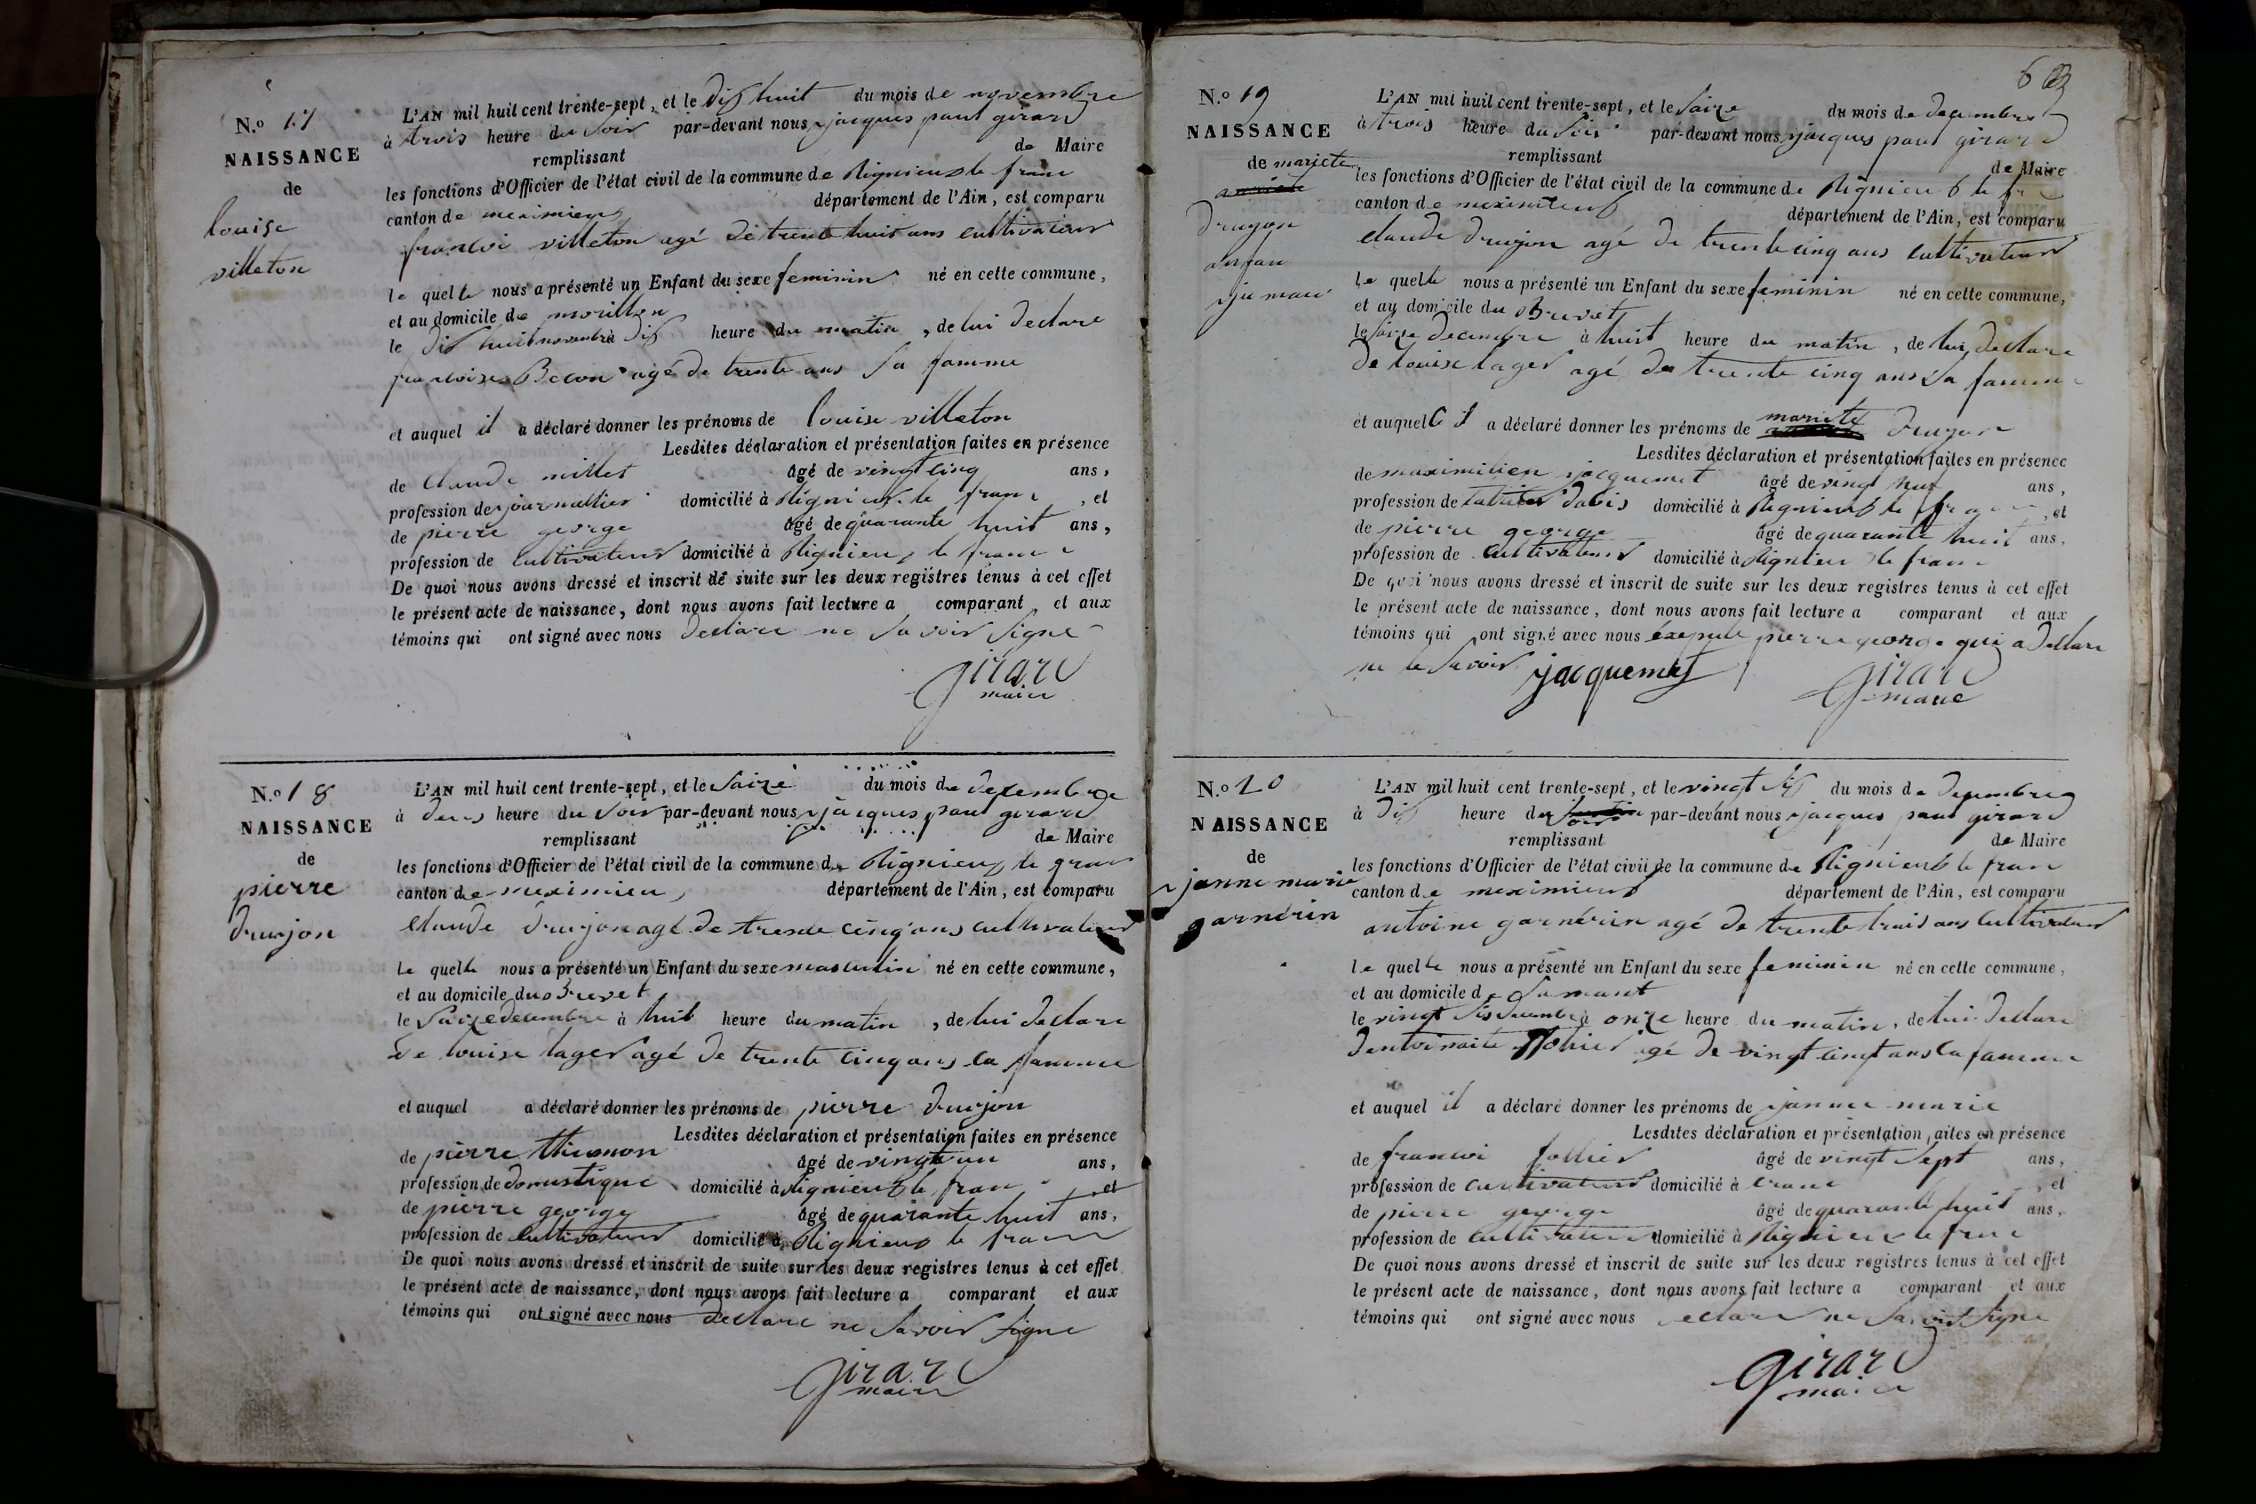 N.o 17
NAISSANCE
de
louise
villeton
L'AN mil huit cent trente-sept, et le dishuit du mois de novembre
à trois heure du Soir par-devant nous jacques paul girard
remplissant de Maire
les fonctions d'Officier de l'état civil de la commune de Rignieux le franc
canton de meximieux département de l'Ain, est comparu
francoi villeton agé de trente huit ans cultivateur
le quelle nous a présenté un Enfant du sexe feminin né en cette commune,
et au domicile de
le dis huit novembre à dis heure du matin, de lui declare
francoise agé de trente ans Sa famme
et auquel il a déclaré donner les prénoms de louise villeton
Lesdites déclaration et présentation faites en présence
de claude millet âgé de vingt cinq ans,
profession de journallier domicilié à Rignieux le franc, et
de pierre george âgé de quarante huit ans,
profession de cultivateur domicilié à Rignieux le franc
De quoi nous avons dressé et inscrit de suite sur les deux registres tenus à cet effet
le présent acte de naissance, dont nous avons fait lecture a comparant et aux
témoins qui ont signé avec nous declare ne Savoir Signe
girard
maire
N.o 18
NAISSANCE
de
pierre
drujon
L'AN mil huit cent trente-sept, et le Saize du mois de decembre
à deus heure du Soir par-devant nous jacques paul girard
remplissant de Maire
les fonctions d'Officier de l'état civil de la commune de Rignieux le
canton de meximieu département de l'Ain, est comparu
claude drujon agé de trente cinq ans cultivateur
le quelle nous a présenté un Enfant du sexe masculin né en cette commune,
et au domicile du Bruvet
le Saize decembre à huit heure du matin, de lui declare
de louise lager agé de trente cinq ans la famme
et auquel a déclaré donner les prénoms de pierre drujon
Lesdites déclaration et présentation faites en présence
de pierre âgé de vingt un ans,
profession de domestique domicilié à Rignieux le franc et
de pierre george âgé de quarante huit ans,
profession de cultivateur domicilié à Rignieux le franc
De quoi nous avons dressé et inscrit de suite sur les deux registres tenus à cet effet
le présent acte de naissance, dont nous avons fait lecture a comparant et aux
témoins qui ont signé avec nous declare ne Savoir Signe
girard
maire
N.o 19
NAISSANCE
de mariete
drujon
L'AN mil huit cent trente-sept, et le Saize du mois de decembre
à trois heure du Soir par-devant nous jacques paul girard
remplissant de Maire
les fonctions d'Officier de l'état civil de la commune de Rignieux le
canton de meximieux département de l'Ain, est comparu
claude drujon agé de trente cinq ans cultivateur
le quelle nous a présenté un Enfant du sexe feminin né en cette commune,
et au domicile du Bruvet
le Saize decembre à huit heure du matin, de lui declare
de louise lager agé de trente cinq ans Sa famme
et auquel il a déclaré donner les prénoms de mariete drujon
Lesdites déclaration et présentation faites en présence
de maximilien jacquemet âgé de vingt ans,
profession de domicilié à Rignieux le franc, et
de pierre george âgé de quarante huit ans,
profession de cultivateur domicilié à Rignieux le franc
De quoi nous avons dressé et inscrit de suite sur les deux registres tenus à cet effet
le présent acte de naissance, dont nous avons fait lecture a comparant et aux
témoins qui ont signé avec nous pierre george qui a declare
ne le Savoir jacquemet girard
maire
N.o 20
NAISSANCE
de
janne marie
garnérin
L'AN mil huit cent trente-sept, et le vingt Sis du mois de decembre
à dis heure du Soir par-devant nous jacques paul girard
remplissant de Maire
les fonctions d'Officier de l'état civil de la commune de Rignieux le franc
canton de meximieux département de l'Ain, est comparu
antoine garnérin agé de trente trois ans cultivateur
le quelle nous a présenté un Enfant du sexe feminin né en cette commune,
et au domicile de
le vingt Sis decembre à onze heure du matin, de lui declare
agé de vingt cinq ans la famme
et auquel il a déclaré donner les prénoms de janne marie
Lesdites déclaration et présentation faites en présence
de francoi follier âgé de vingt Sept ans,
profession de cultivateur domicilié à, et
de pierre george âgé de quarante huit ans,
profession de cultivateur domicilié à Rignieux le franc
De quoi nous avons dressé et inscrit de suite sur les deux registres tenus à cet effet
le présent acte de naissance, dont nous avons fait lecture a comparant et aux
témoins qui ont signé avec nous declare ne Savoir Signe
girard
maire